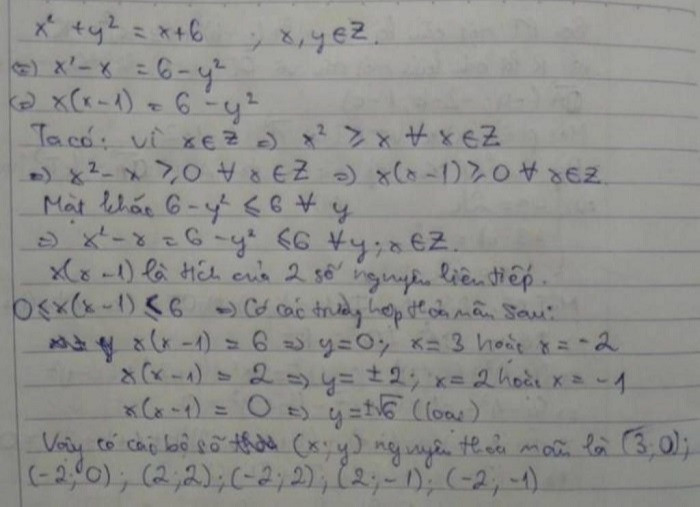 x² + y² = x + 6 ; x, y ∈ Z.
⇔ x² - x = 6 - y²
⇔ x(x - 1) = 6 - y²
Ta có: Vì x ∈ Z ⇒ x² ⩾ x ∀ x ∈ Z
⇒ x² - x ⩾ 0 ∀ x ∈ Z ⇒ x(x - 1) ⩾ 0 ∀ x ∈ Z
Mặt khác 6 - y² ⩽ 6 ∀ y
⇒ x² - x = 6 - y² ⩽ 6 ∀ y; x ∈ Z.
x(x - 1) là tích của 2 số nguyên liên tiếp.
0 ⩽ x(x - 1) ⩽ 6 ⇒ Có các trường hợp thỏa mãn sau:
x(x - 1) = 6 ⇒ y = 0; x = 3 hoặc x = -2
x(x - 1) = 2 ⇒ y = ± 2; x = 2 hoặc x = -1
x(x - 1) = 0 ⇒ y = ±√6 (loại)
Vậy có các bộ số (x; y) nguyên thỏa mãn là (3; 0);
(-2; 0); (2; 2); (-2; 2); (2; -1); (-2; -1)